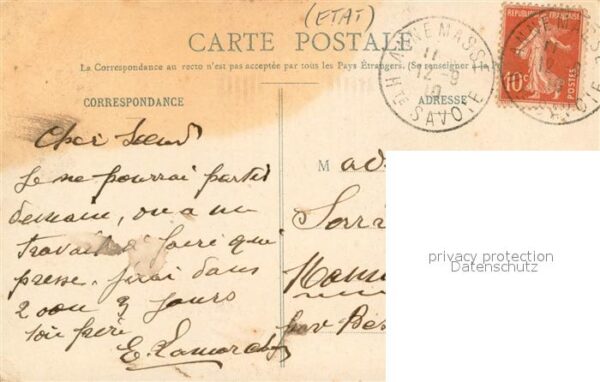 (ETAT)
CARTE POSTALE
La Correspondance au recto n'est pas acceptée par tous les Pays Étrangers. (Se renseigner à la P
CORRESPONDANCE
ADRESSE
ANNEMASSE
11
12 -9
10
HTE SAVOIE
RÉPUBLIQUE FRANÇAISE
10c
POSTES
Cher
Je ne pourrai partir
demain, on a un
travail à faire qui
presse. J'irai dans
2 ou 3 jours
ton père
E.
M ad
privacy protection
Datenschutz
par Bes